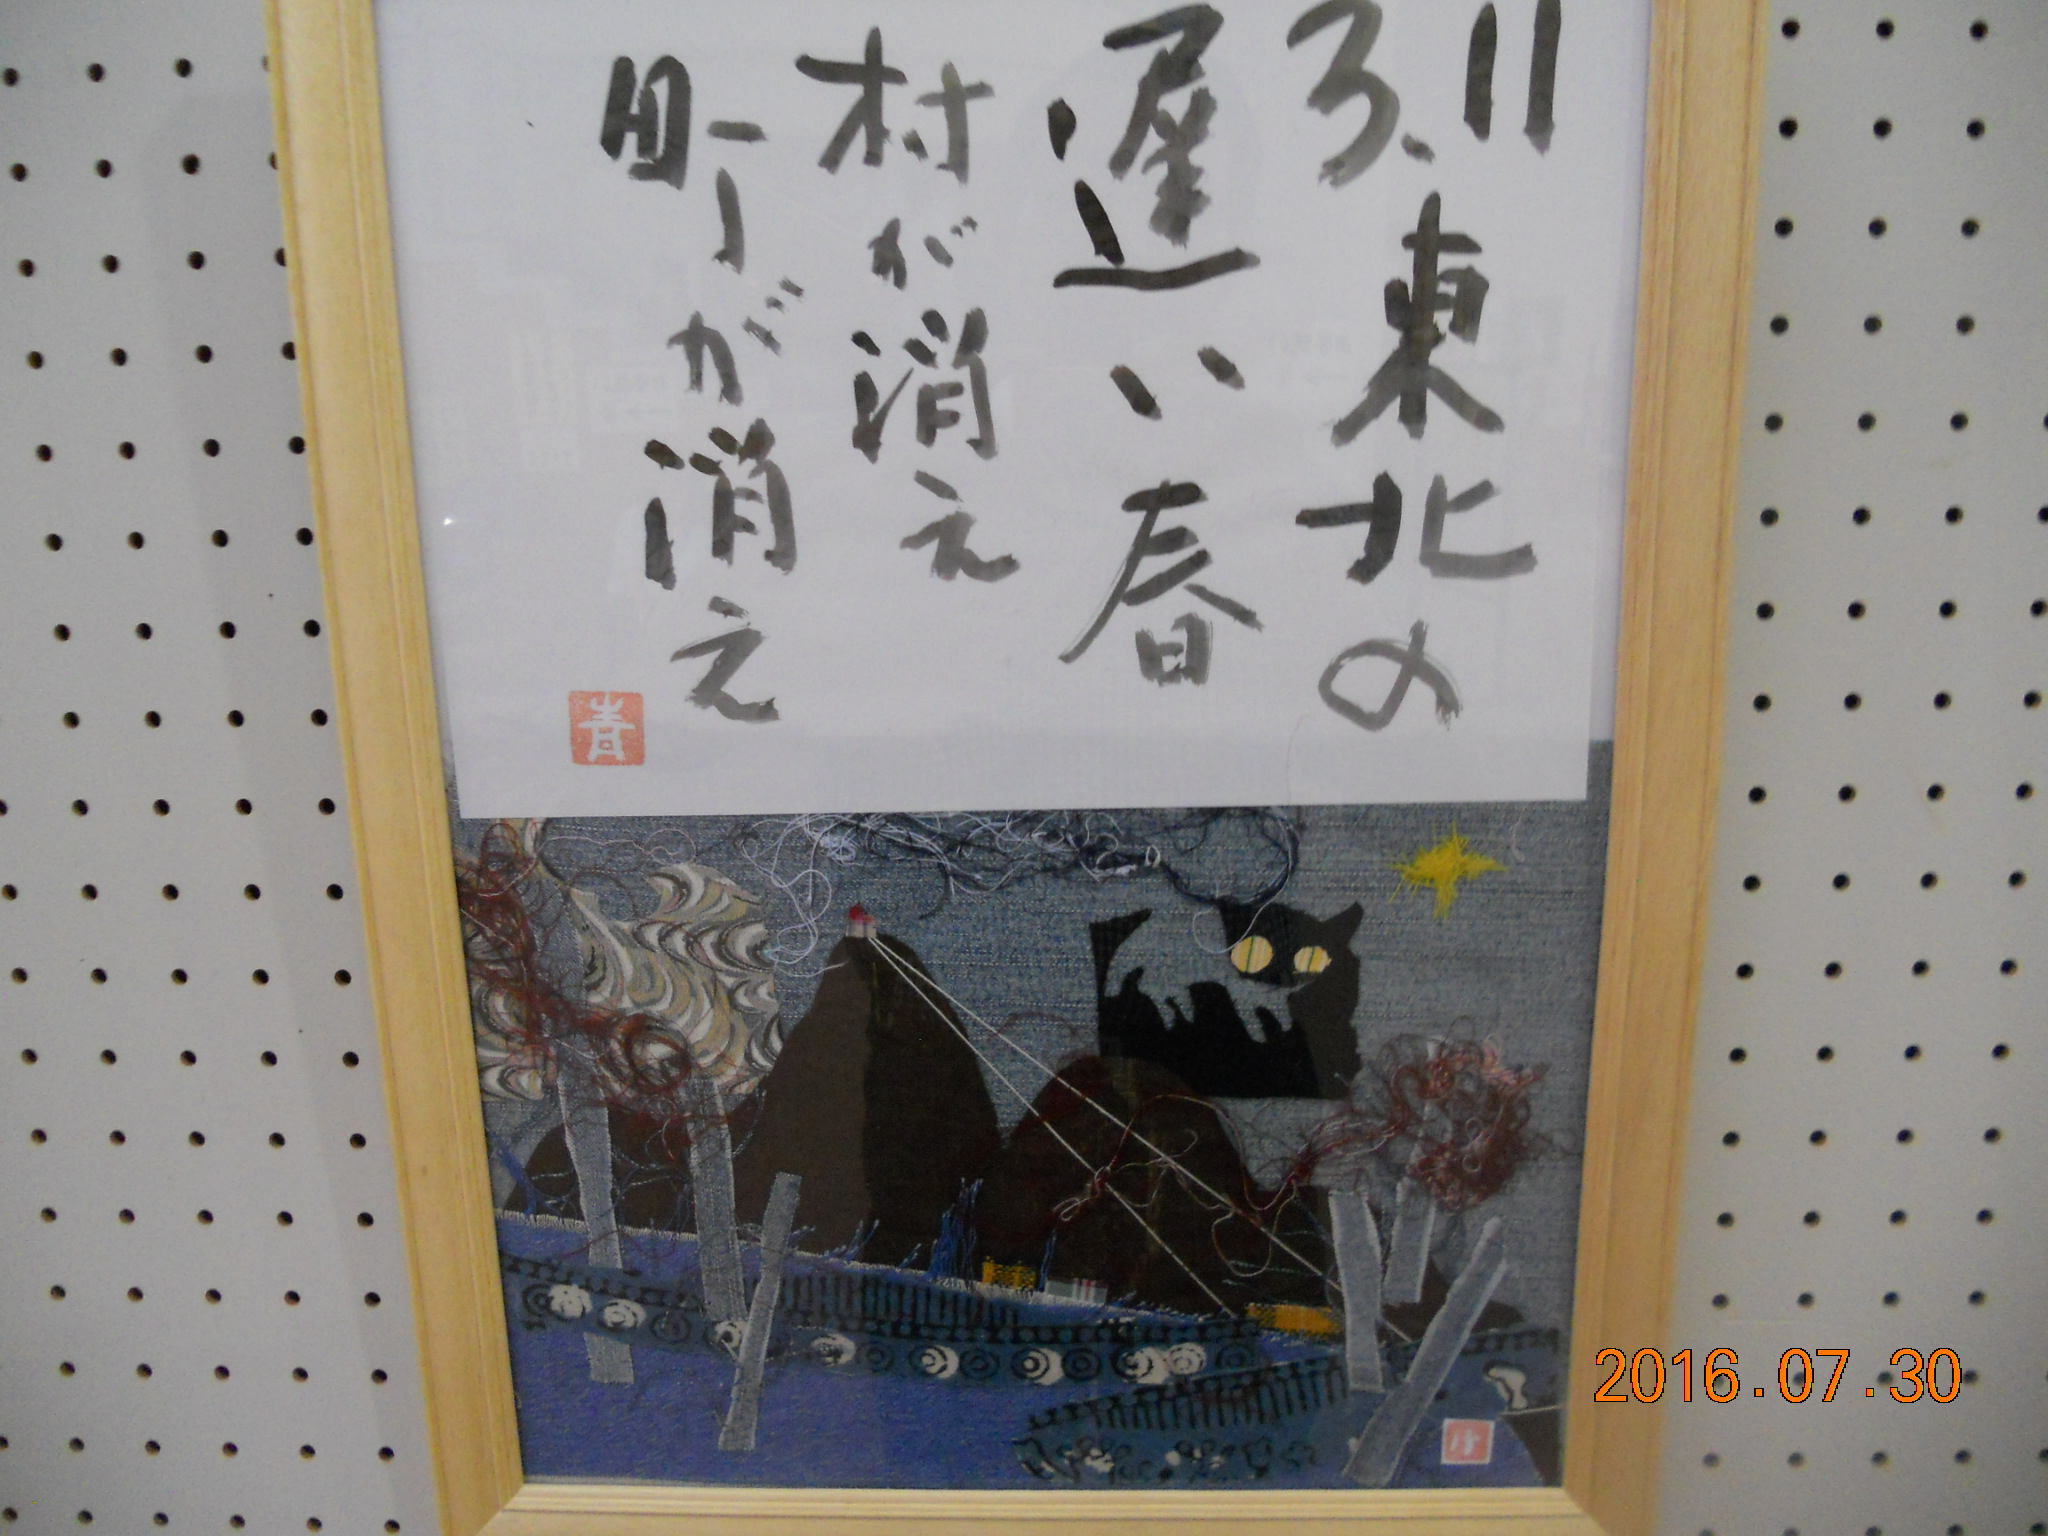 3.11
東北の
遅い春
村が消え
町が消え
青
2016.07.30